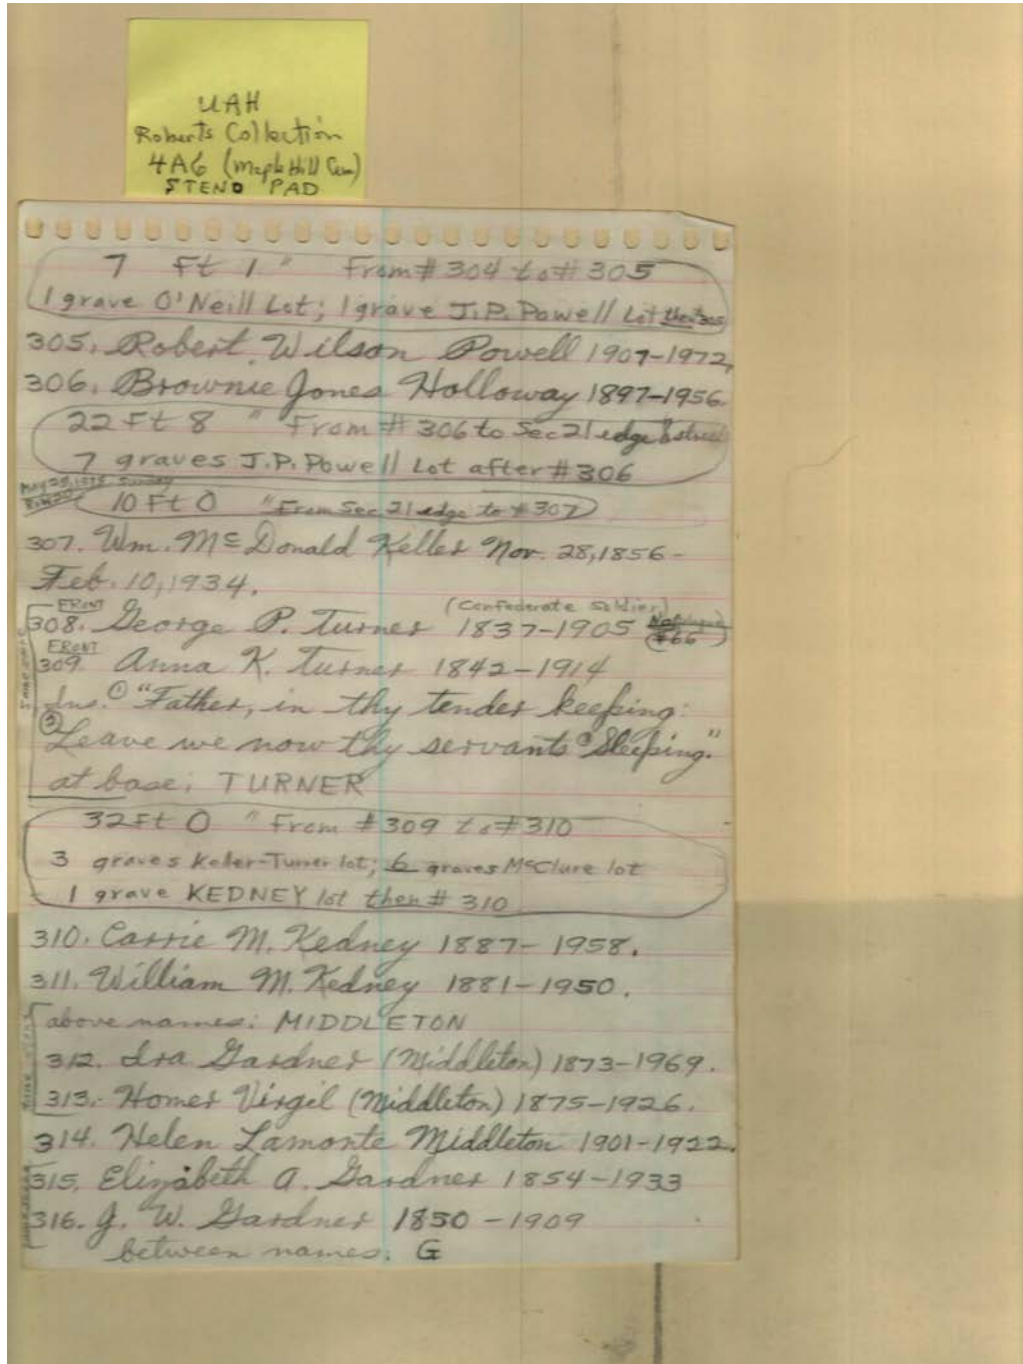 UAH
Roberts Collection
4A6 (Maple Hill Cem)
STENO PAD
7 Ft 1" From # 304 to # 305
1 grave O'Neill Lot; 1 grave J.P. Powell Lot then 305
305. Robert Wilson Powell 1907-1972.
306. Brownie Jones Holloway 1897-1956.
22 Ft 8 " From # 306 to Sec 21 edge street
7 graves J.P. Powell Lot after # 306
May 25, 1975 Sunday
10 Ft 0 " From Sec 21 edge to # 307
307. Wm. McDonald Keller Nov. 28, 1856-
Feb. 10, 1934.
FRONT (Confederate Soldier)
308. George P. Turner 1837-1905
#66
FRONT
309. Anna K. Turner 1842-1914
same stone
Ins. ① "Father, in thy tender keeping:
② Leave we now thy servants Sleeping."
at base: TURNER
32 Ft 0 " From # 309 to # 310
3 graves Keller-Turner lot; 6 graves McClure lot
1 grave KEDNEY lot then # 310
310. Carrie M. Kedney 1887-1958.
311. William M. Kedney 1881-1950.
above names: MIDDLETON
312. Ira Gardner (Middleton) 1873-1969.
same stone
313. Homer Virgil (Middleton) 1875-1926.
314. Helen Lamonte Middleton 1901-1922.
315. Elizabeth A. Gardner 1854-1933
same stone
316. J. W. Gardner 1850-1909
between names: G